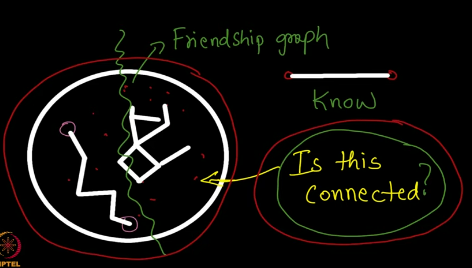 Friendship graph
Know
Is this
connected?
NPTEL